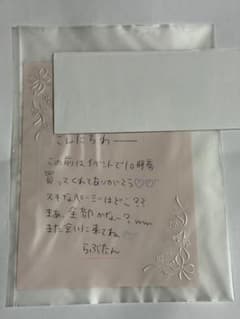 こんにちわ――
この前はイベントで10冊も
買ってくれてありがとう♡♡
スキなページはどこ？？
まぁ、全部かなー？ww
また会いに来てね
らぶたん